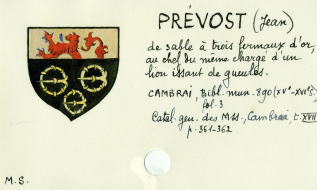 PRÉVOST (Jean)
de sable à trois fermaux d'or,
au chef du même chargé d'un
lion issant de gueules.
CAMBRAI, Bibl. mun. 890 (XVe-XVIe s.)
fol. 3
Catal. gén. des Mss., Cambrai, t. XVII
p. 361-362
M.S.